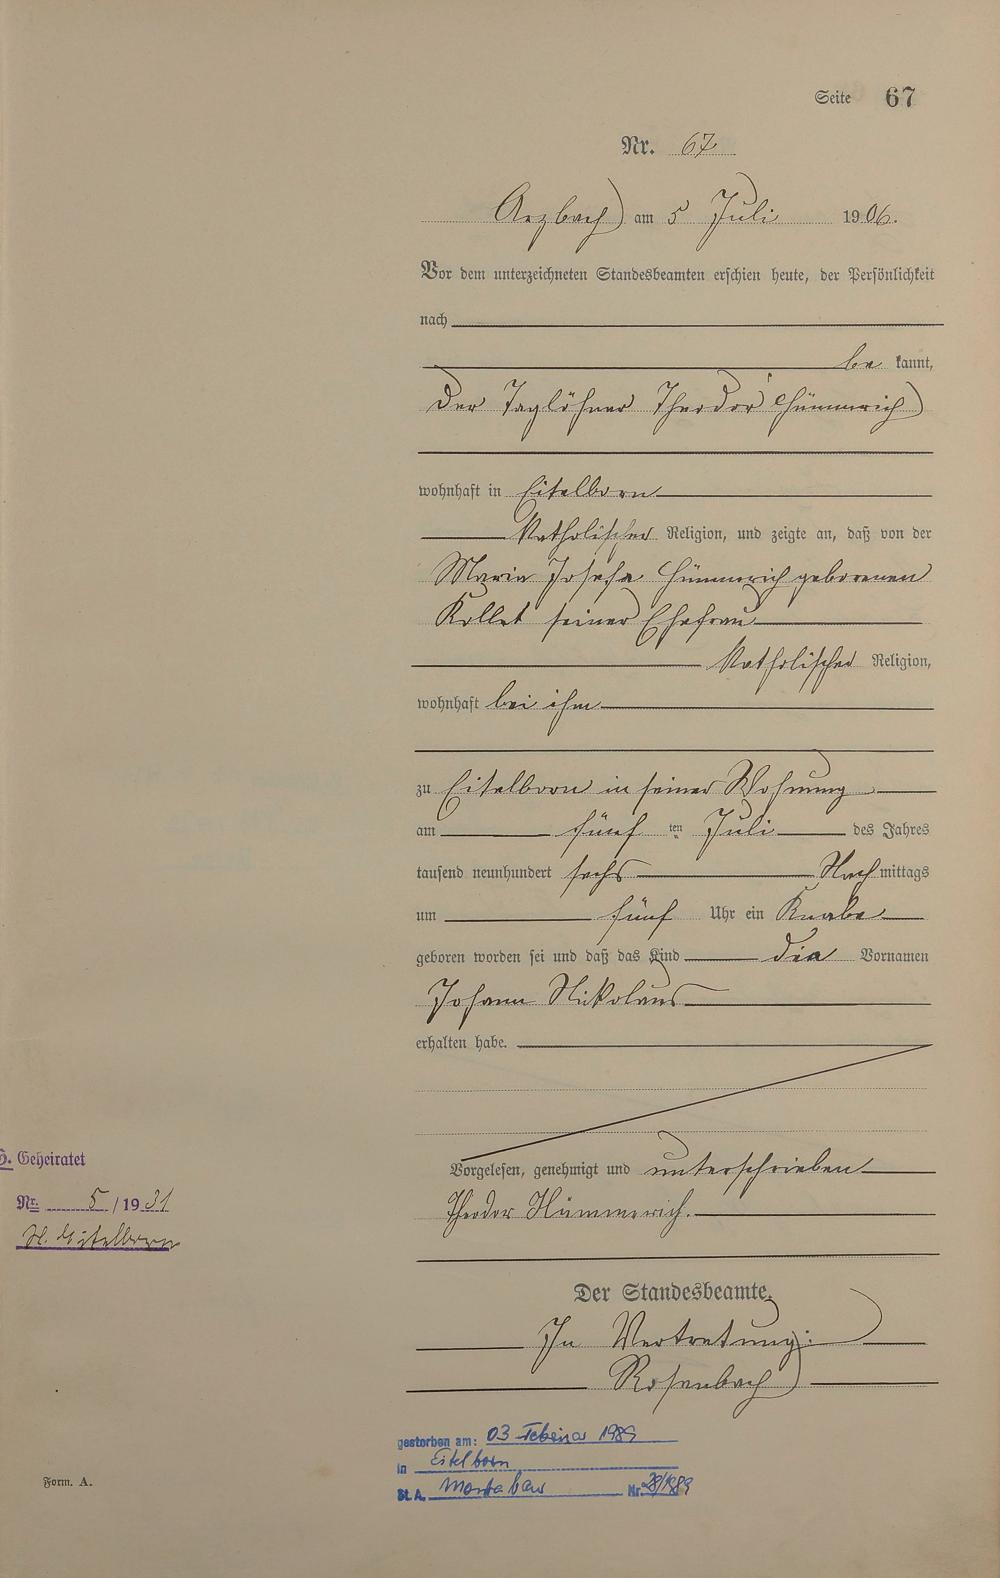 Seite 67
Nr. 67
Arzbach am 5 Juli 1906.
Vor dem unterzeichneten Standesbeamten erschien heute, der Persönlichkeit
nach
be kannt,
der Taglöhner Theodor Hümmerich
wohnhaft in Eitelborn
katholischer Religion, und zeigte an, daß von der
Maria Josefa Hümmerich geborenen
Kollet seiner Ehefrau
katholischer Religion,
wohnhaft bei ihm
zu Eitelborn in seiner Wohnung
am fünf ten Juli des Jahres
tausend neunhundert sechs Nach mittags
um fünf Uhr ein Knabe
geboren worden sei und daß das Kind die Vornamen
Johann Nikolaus
erhalten habe.
Vorgelesen, genehmigt und unterschrieben
Theodor Hümmerich.
Der Standesbeamte.
In Vertretung:
Rosenbach
Geheiratet
Nr. 5 / 1931
Eitelborn
gestorben am: 03 Februar 1989
in Eitelborn
St.A. Montabaur Nr. 28/1989
Form. A.